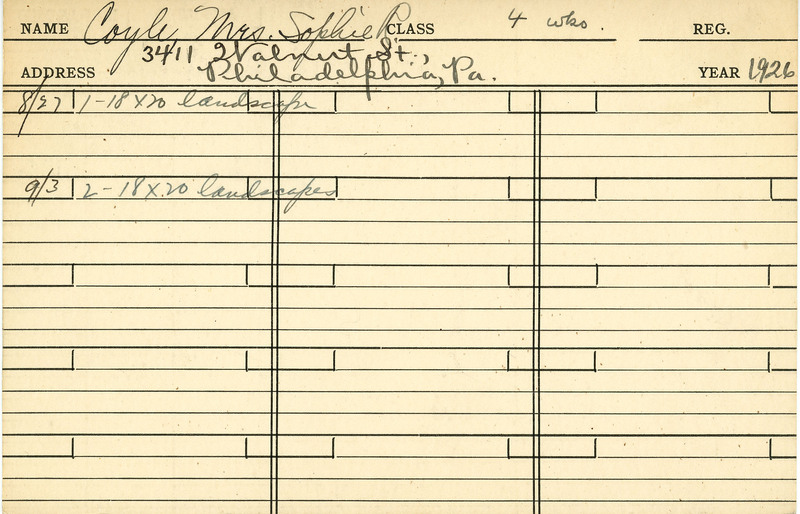 NAME Coyle, Mrs. Sophie P. CLASS 4 wks. REG.
3411 Walnut St.,
ADDRESS Philadelphia, Pa. YEAR 1926
8/27 1-18 x 20 landscape
9/3 2-18 x 20 landscapes